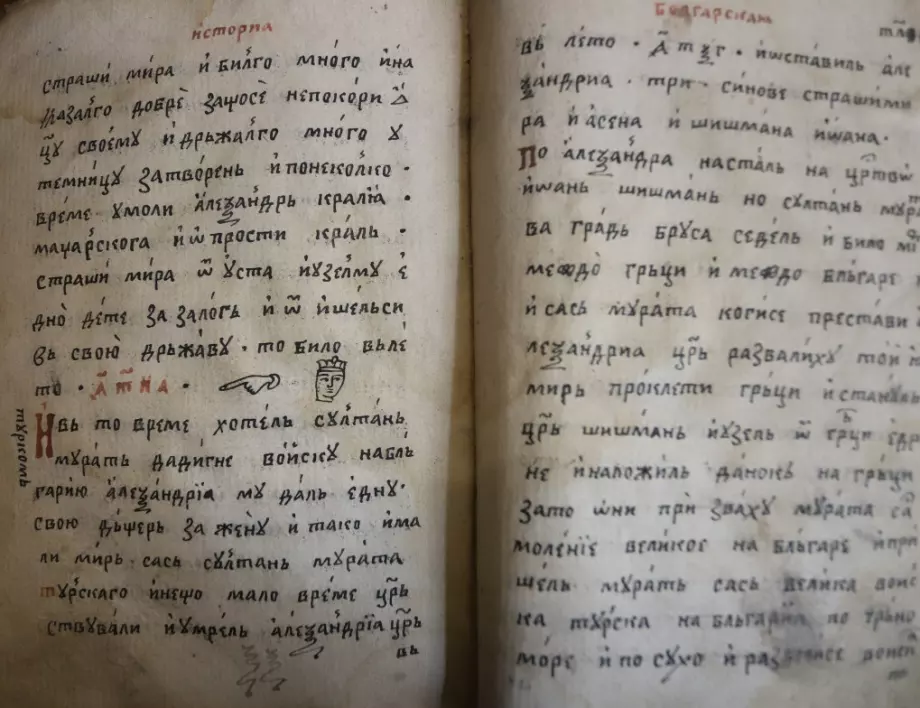 исторїа
страши́ мира и́ би́лго мно́го и́ на
казалго добре̑ запосѐ непокори
цру̑ свое́му и́ дръжа́лго много у
темницу затво́рень и́ понеколико ·
вре́ме умоли а҆леѯа́ндрь кралїа̀ ·
маџарскога и́ ѡпрости̑ кра́ль ·
страши́ мира ѿ у́ста и́ узе́лму е
дно̀ де́те за зало́гь и́ ѿ и́шельси
вь своѝ дрьжа́ву · то би́ло вьле́
то ·
И҆вь то вре́ме хоте́ль султа́нь
туркомь
мура́ть дадигне во́иску на бль
гарию а҆леѯа́ндрїа му да́ль е҆дну ·
свою дьще́рь за же́ну и́ тако и́ма
ли ми́рь · сась султа́нь мурата
турскаго и́ нешо мало вре́ме црь̑
ствували и́ умре́ль а҆леѯа́ндрїа црь̑
вь
Болгарскаѧ
вь ле́то · а҃тѯг · и́ ѡста́виль а҆ле
ѯа́ндриа · три · си́нове страши́ми
ра и́ а́сена и́ шишма́на и́ѡана ·
По а҆леѯа́ндра наста́ль на
и́ѡань шишма́нь но султа́нь
ва гра́дь бруса седе́ль и́ било
межд̀о грьци и́ межд̀о бльгаре
и́ сась мура́та когисе преста́ви
леѯа́ндриа црь̑ развали́ху то́и
мирь про́клети грьци и́ стану́ль
црь̑ шишма́нь и́ узель ѿ грци
не и́ нало́жиль да́нокь на грьци
зато ѡ́ни при́ зва́ху мура́та
моле́нїе вели́кое на бльгаре и́ при
ше́ль мура́ть сась вели́ка
ка турска на
мо́ре и́ по су́хо и́